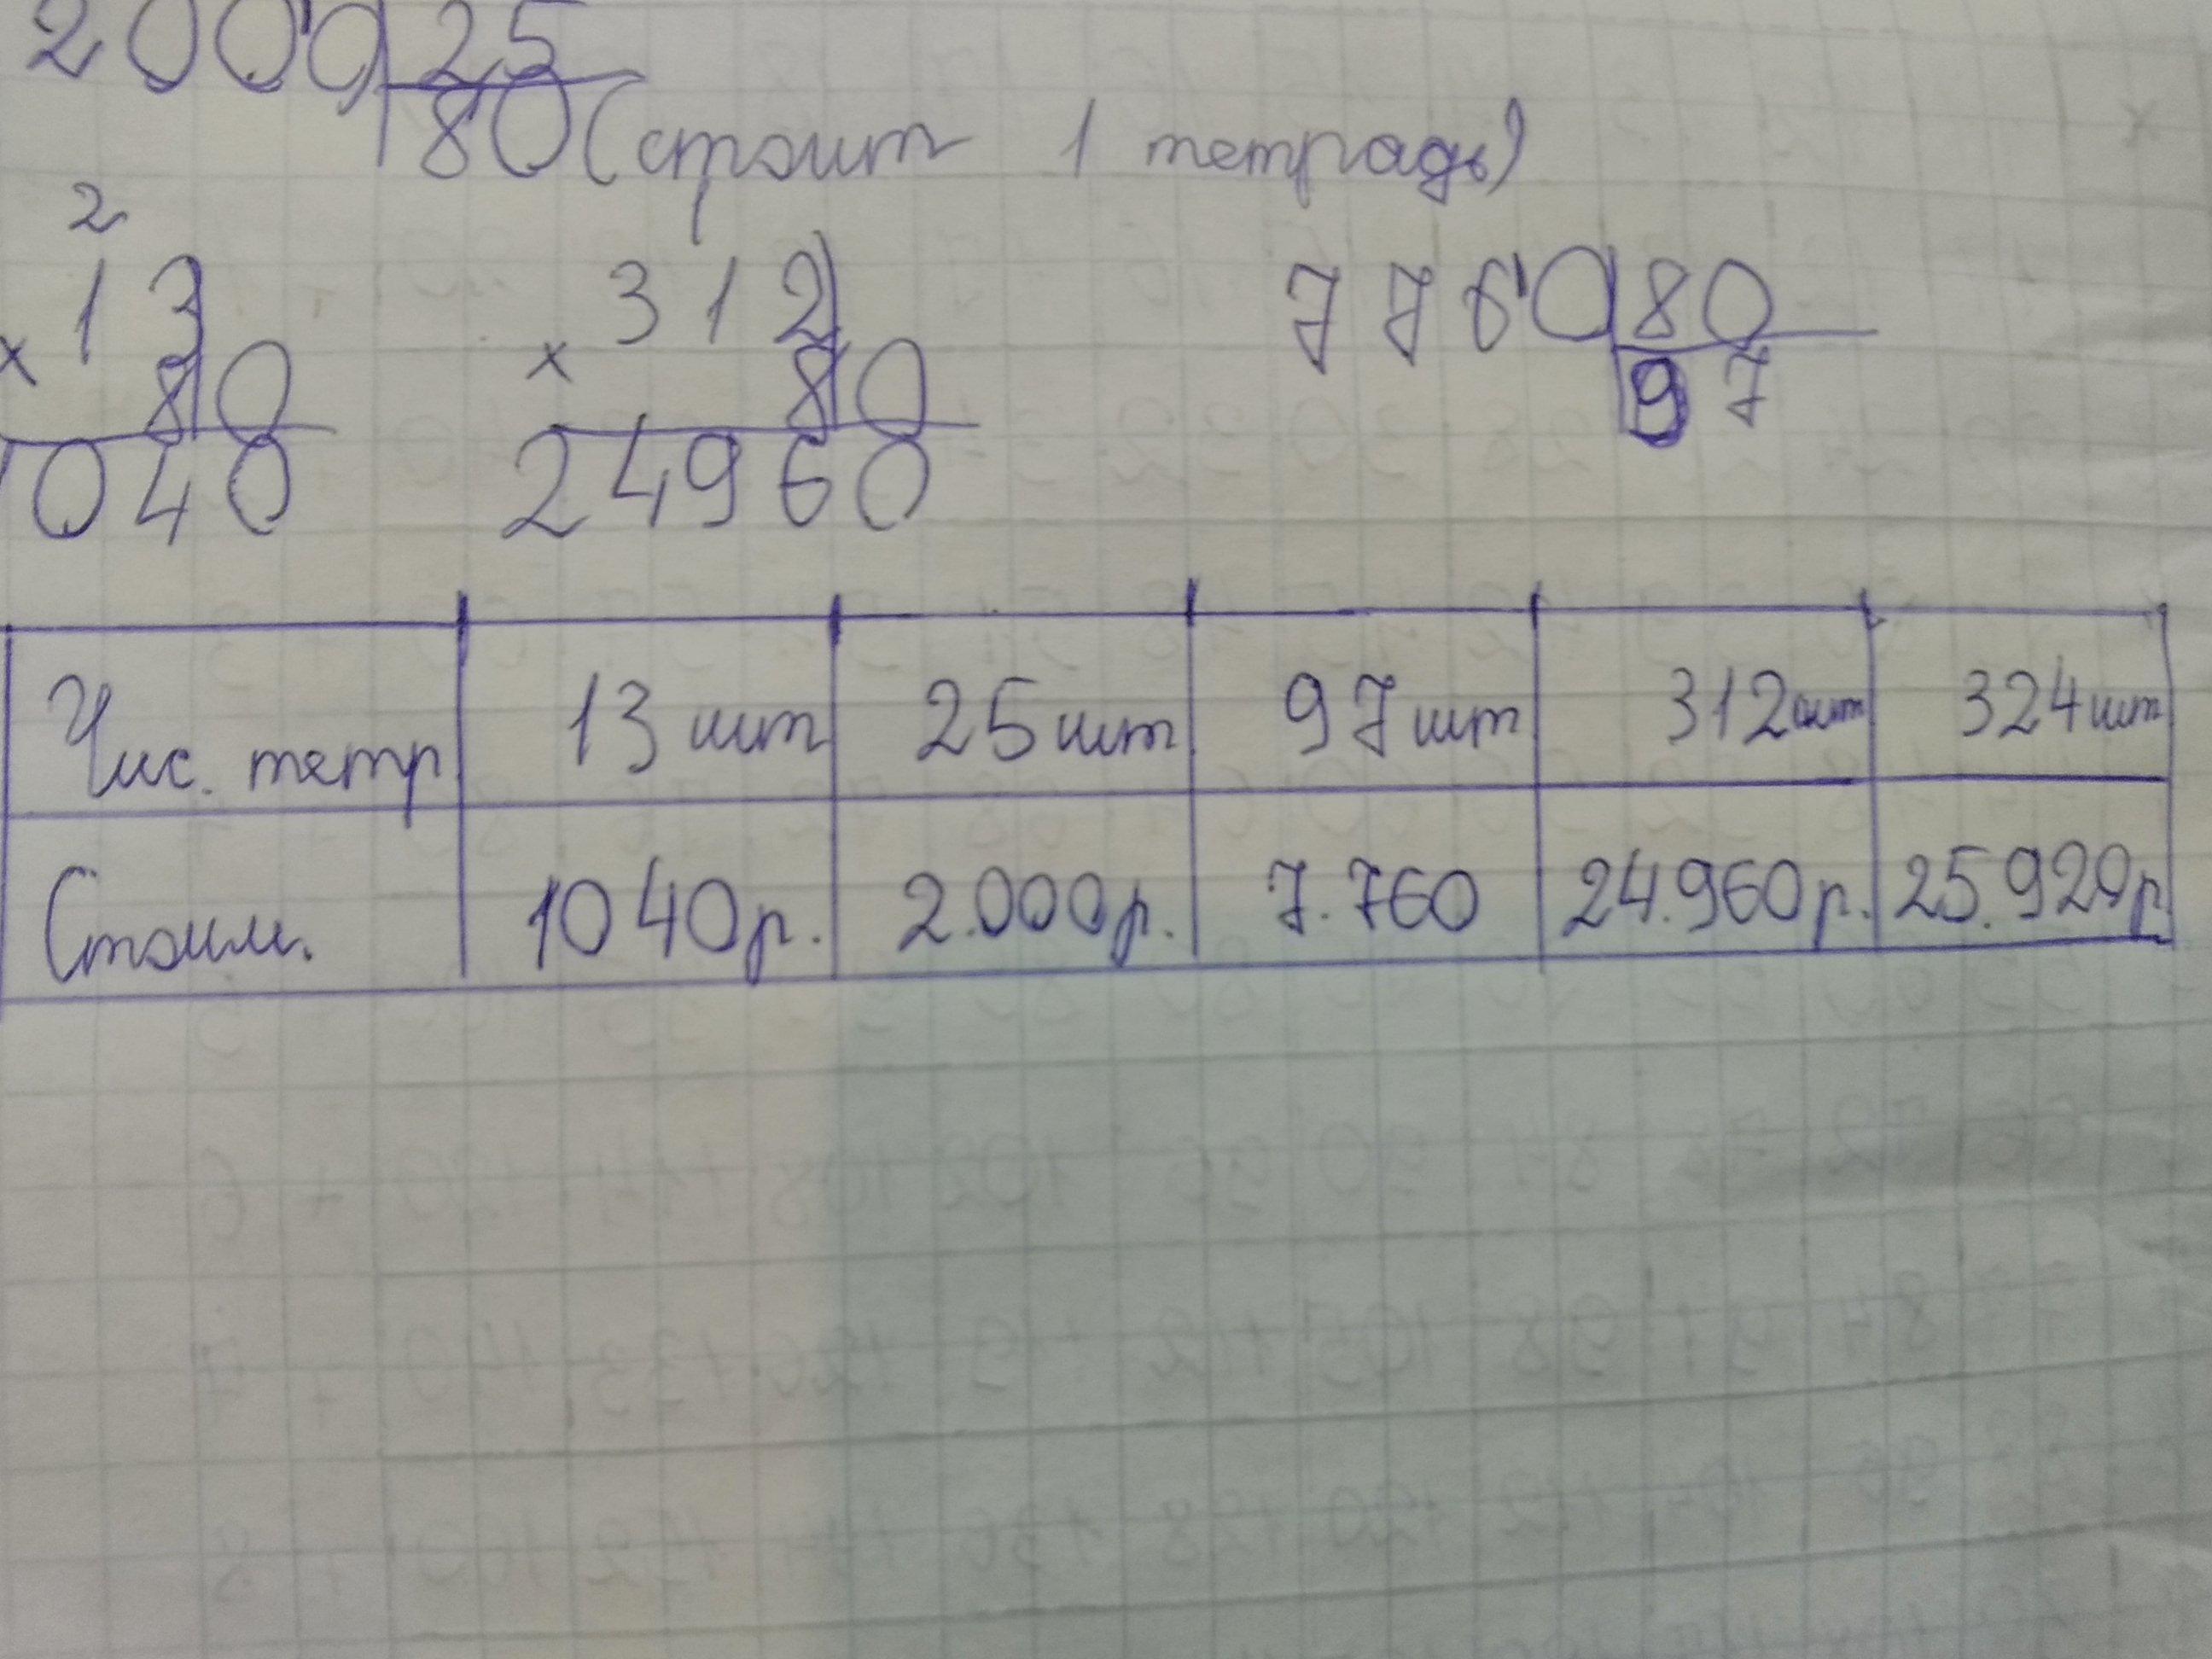 2000 25
80 (стоит 1 тетрадь)
2
13 312 7760 80
× 80 × 80 97
1040 24960
Чис. тетр 13 шт 25 шт 97 шт 312 шт 324 шт
Стоим. 1040 р. 2.000 р. 7.760 24.960 р. 25.920 р.